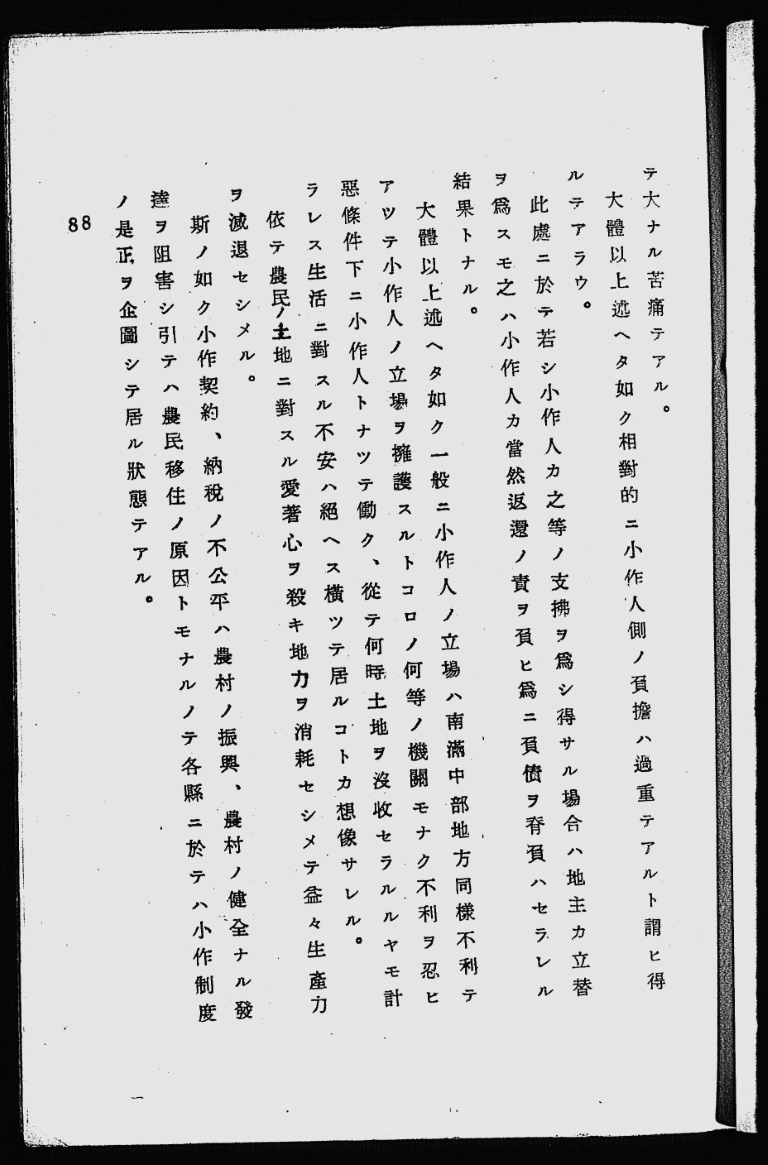 テ大ナル苦痛テアル。
大體以上述ヘタ如ク相對的ニ小作人側ノ負擔ハ過重テアルト謂ヒ得
ルテアラウ。
此處ニ於テ若シ小作人カ之等ノ支拂ヲ爲シ得サル場合ハ地主カ立替
ヲ爲スモ之ハ小作人カ當然返還ノ責ヲ負ヒ爲ニ負債ヲ脊負ハセラレル
結果トナル。
大體以上述ヘタ如ク一般ニ小作人ノ立場ハ南滿中部地方同樣不利テ
アツテ小作人ノ立場ヲ擁護スルトコロノ何等ノ機關モナク不利ヲ忍ヒ
惡條件下ニ小作人トナツテ働ク、從テ何時土地ヲ沒收セラルルヤモ計
ラレス生活ニ對スル不安ハ絕ヘス横ツテ居ルコトカ想像サレル。
依テ農民ノ土地ニ對スル愛著心ヲ殺キ地力ヲ消耗セシメテ益々生產力
ヲ減退セシメル。
斯ノ如ク小作契約、納稅ノ不公平ハ農村ノ振興、農村ノ健全ナル發
達ヲ阻害シ引テハ農民移住ノ原因トモナルノテ各縣ニ於テハ小作制度
ノ是正ヲ企圖シテ居ル狀態テアル。
88